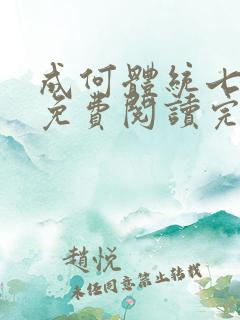 成何體統七
免費閱讀完
趙悅
未經同意禁止轉載